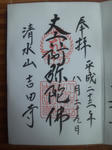 奉拝 平成二十三年
八月二十八日
大阿弥陀佛
清水山 吉田寺